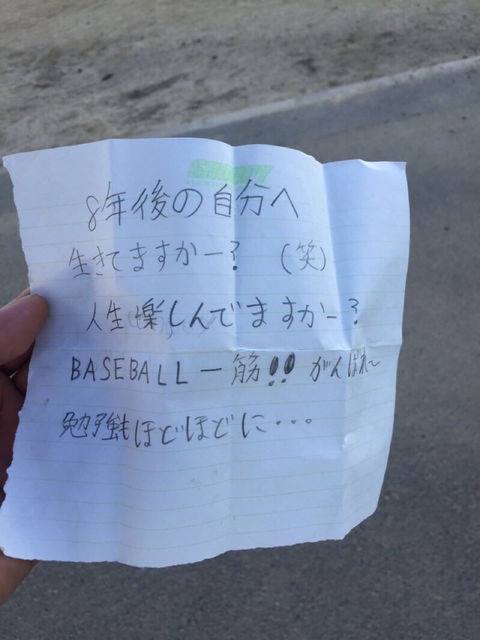 8年後の自分へ
生きてますかー? (笑)
人生楽しんでますかー?
BASEBALL一筋!! がんばれ〜
勉強もほどほどに・・・